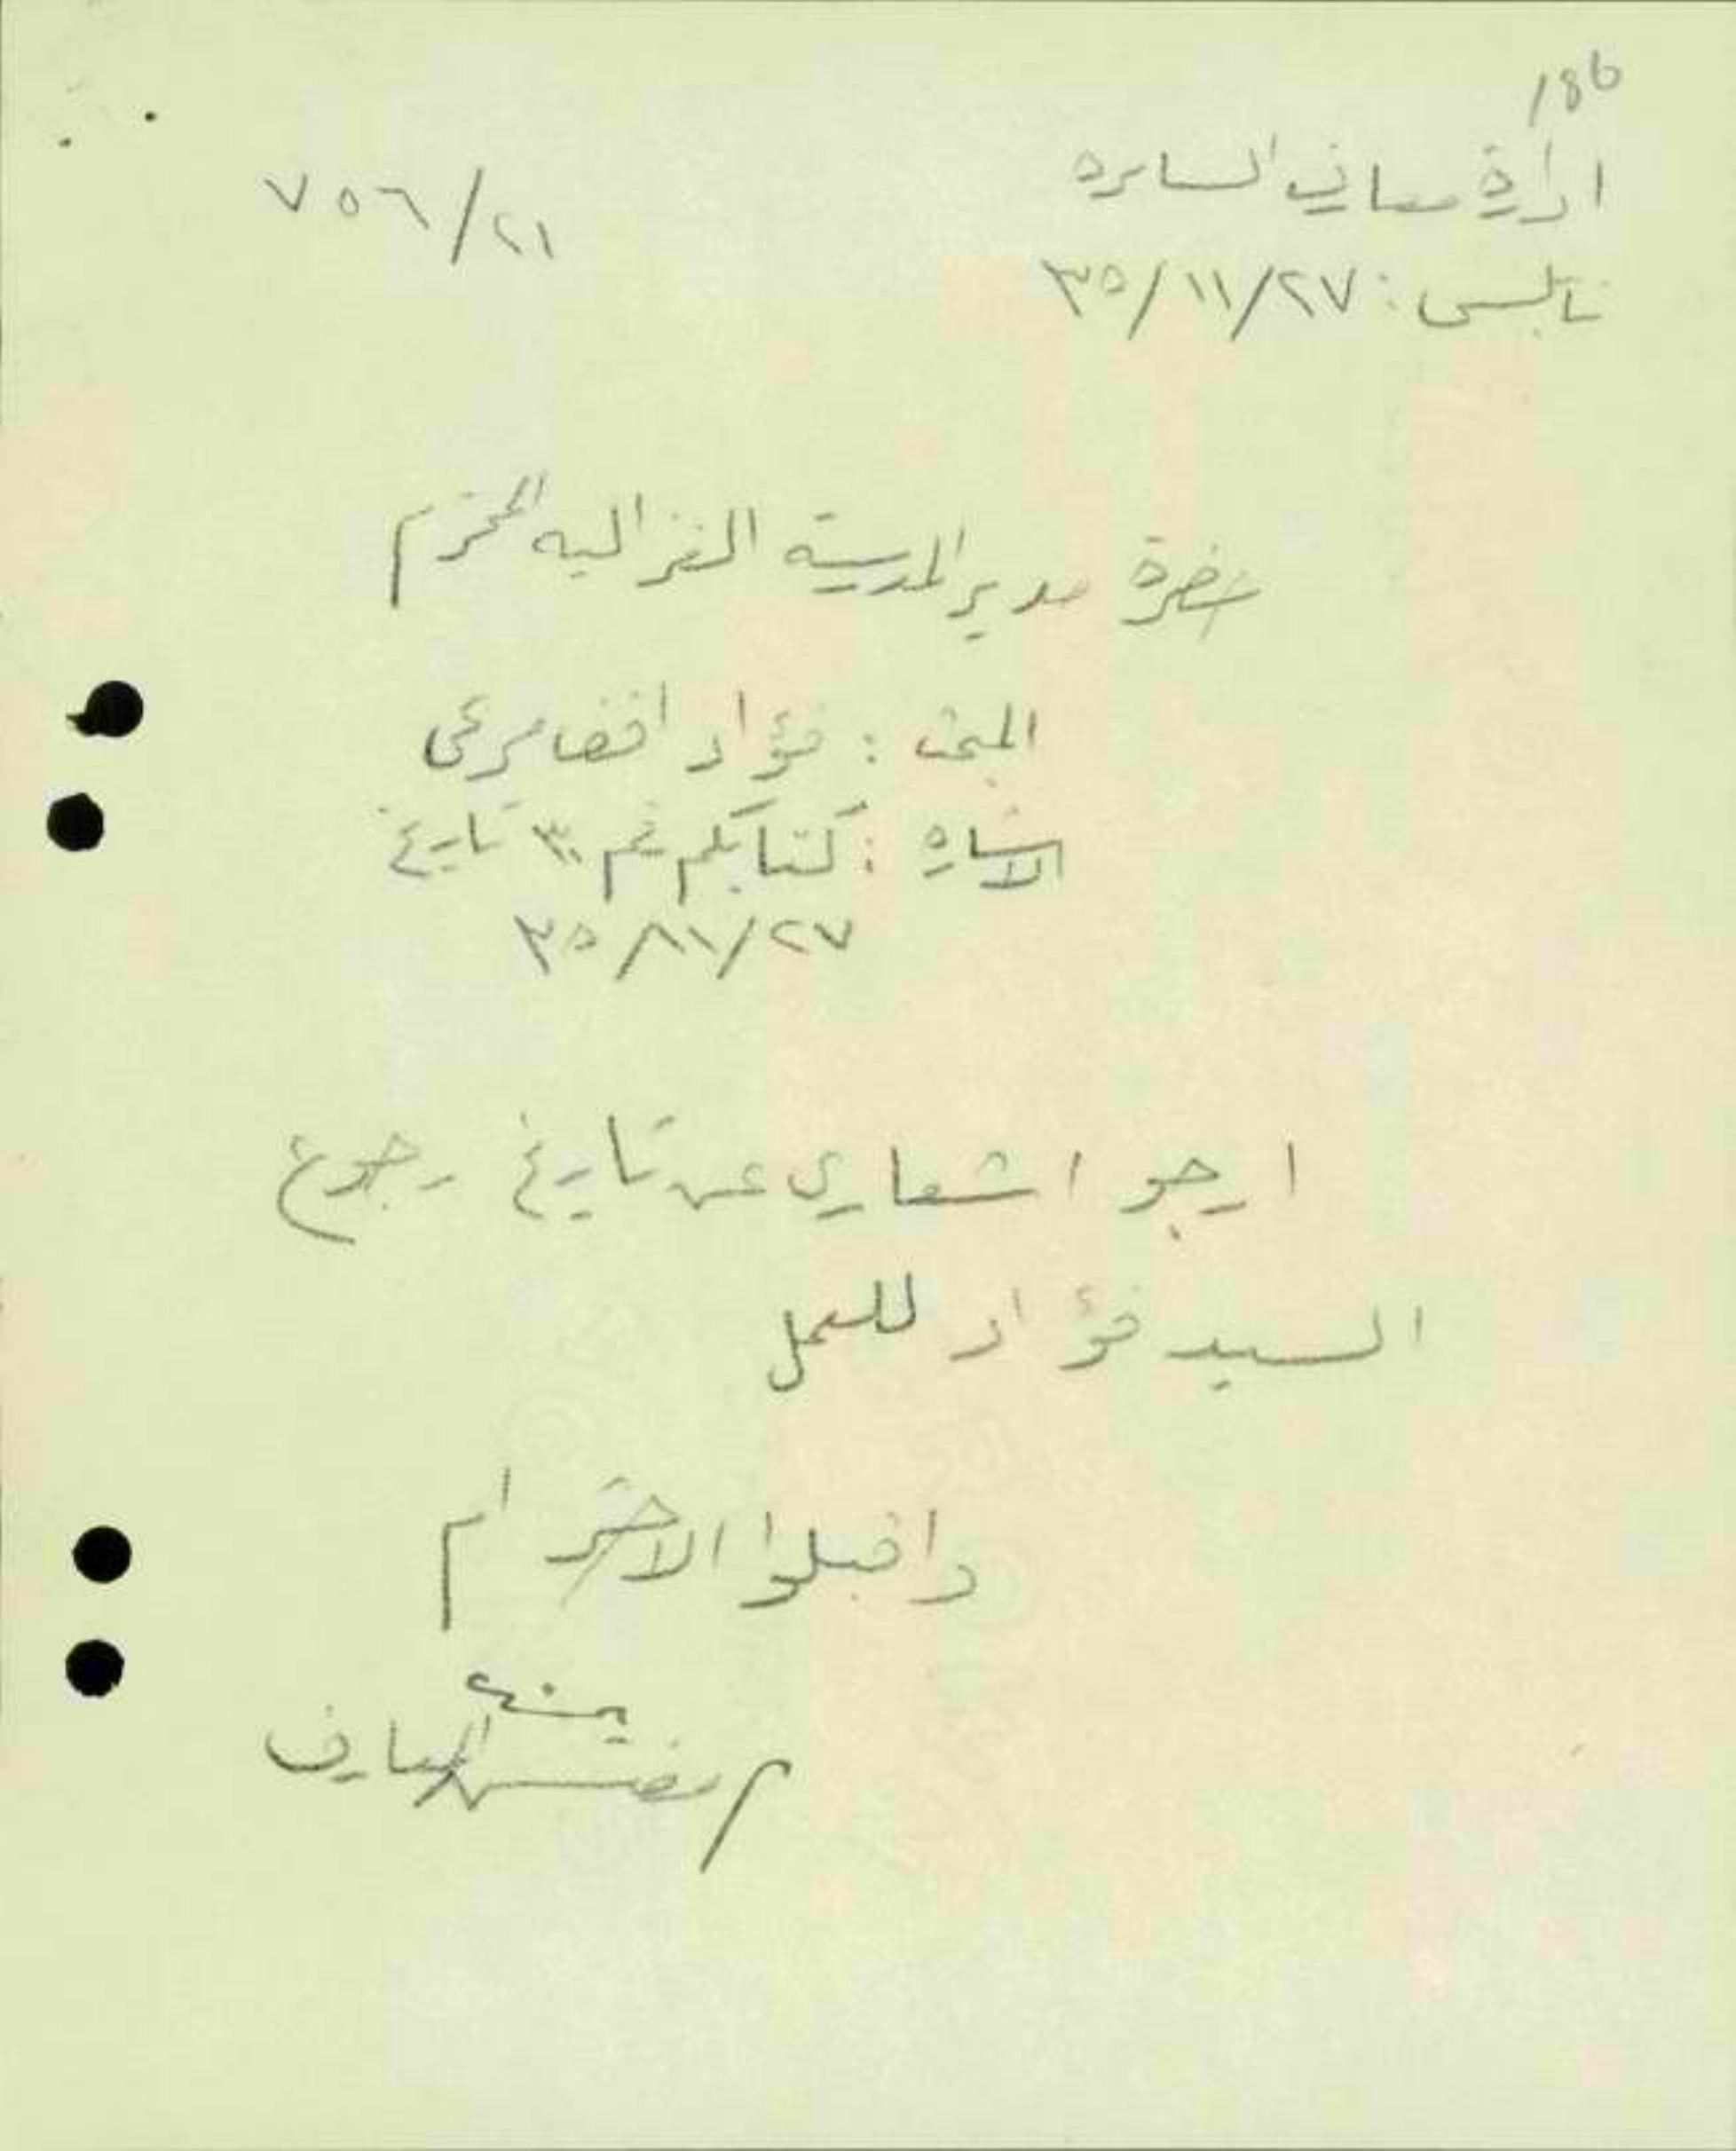 186
ادارة معارف السامره
٧٥٦/٢١
نابلس : ٣٥/١١/٢٧
حضرة مدير المدرسة الغزاليه المحترم
المبحث : فؤاد افندي مرعي
الاشاره : كتابكم رقم تاريخ
٣٥/١١/٢٧
ارجو اشعاري عن تاريخ رجوع
السيد فؤاد للعمل
واقبلوا الاحترام
مفتش المعارف